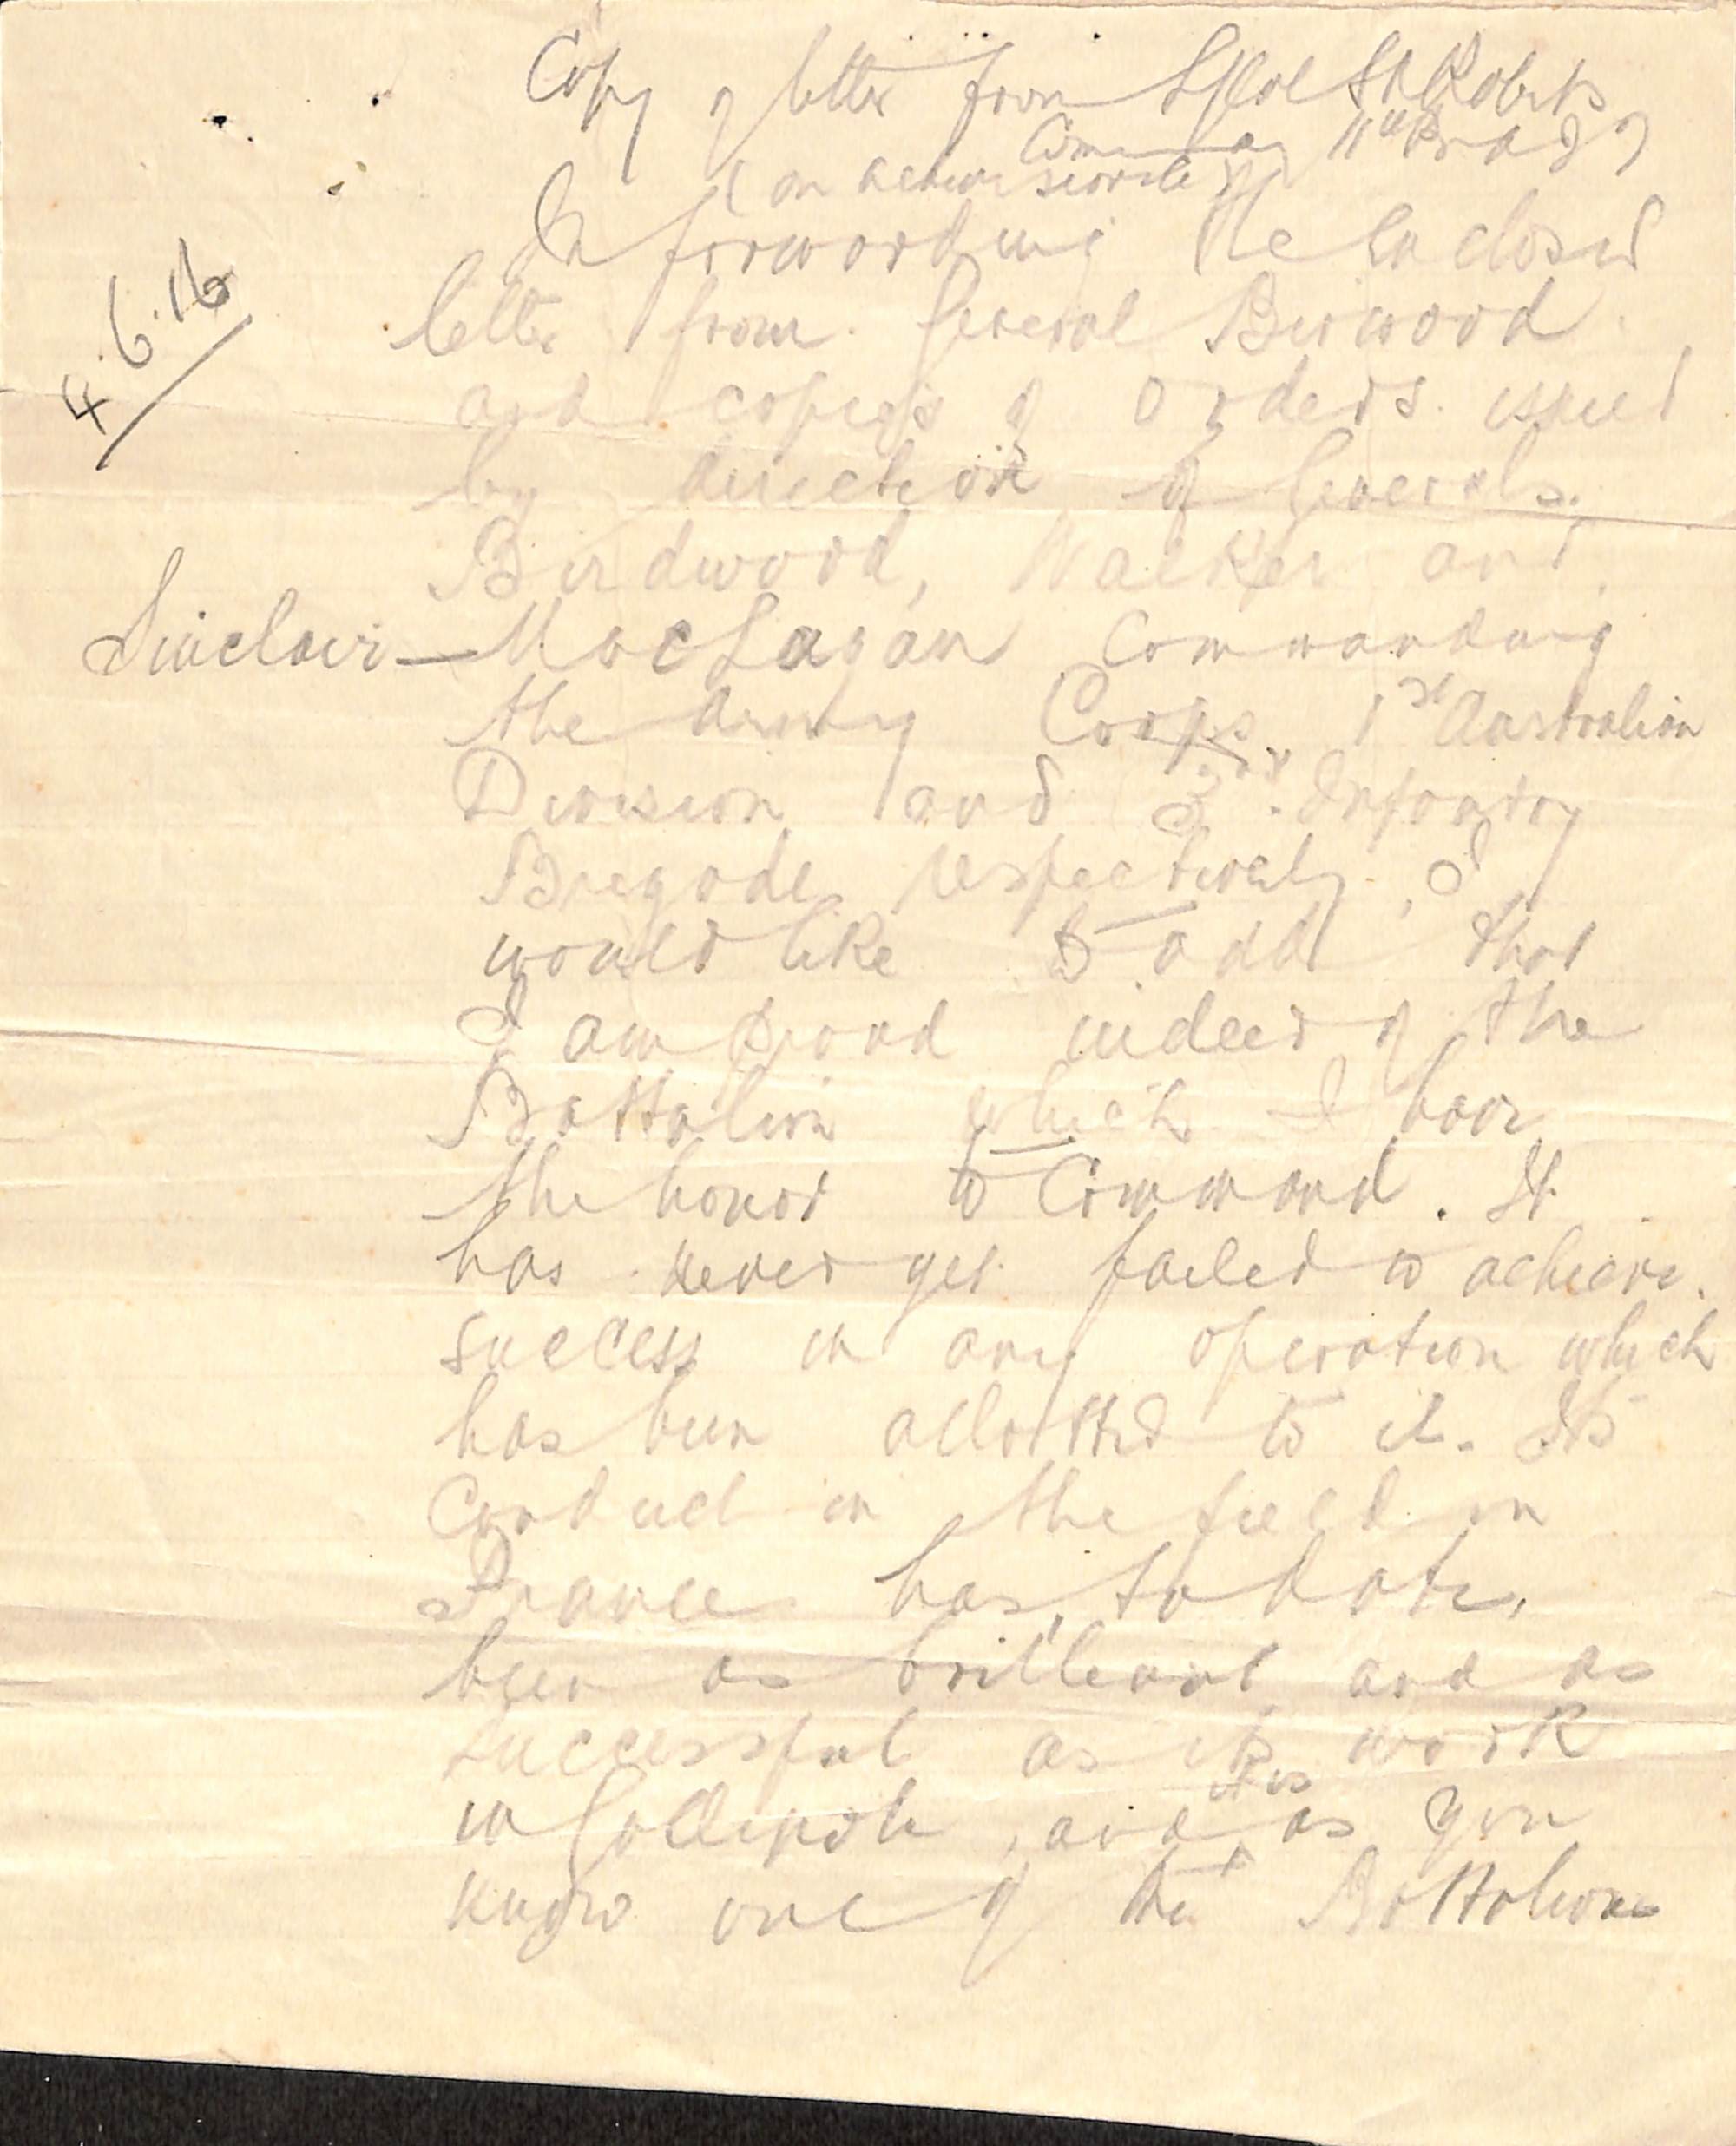 Copy of letter from Lt Col S R Roberts
Commanding
(on active service)
In forwarding the enclosed
4.6.16
letter from General Birwood
and copies of orders issued
by direction of Generals
Birdwood, Walker and
Sinclair - MacLagan Commanding
the Army Corps, 1st Australian
Division and 3rd Infantry
Brigade respectively, I
would like to add that
I am proud indeed of the
Battalion which I have
the honor to Command. It
has never yet failed to achieve
success in any operation which
has been allotted to it. Its
Conduct in the field in
France has, to date,
been as brilliant and as
successful as its work
in Gallipoli, and as you
know one of the Battalions